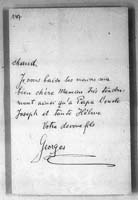 Je vous baise les mains ma
bien chère Maman très tendre-
ment ainsi qu'à Papa l'oncle
Joseph et tante Hélène
Votre dévoué fils
Georges